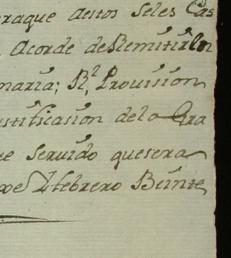 raque aestos seles Cas
Acorde deRemitirlon
maria; Rl. Provision
ustificasion dela Gra
e servido quesera
de febrero Beinte